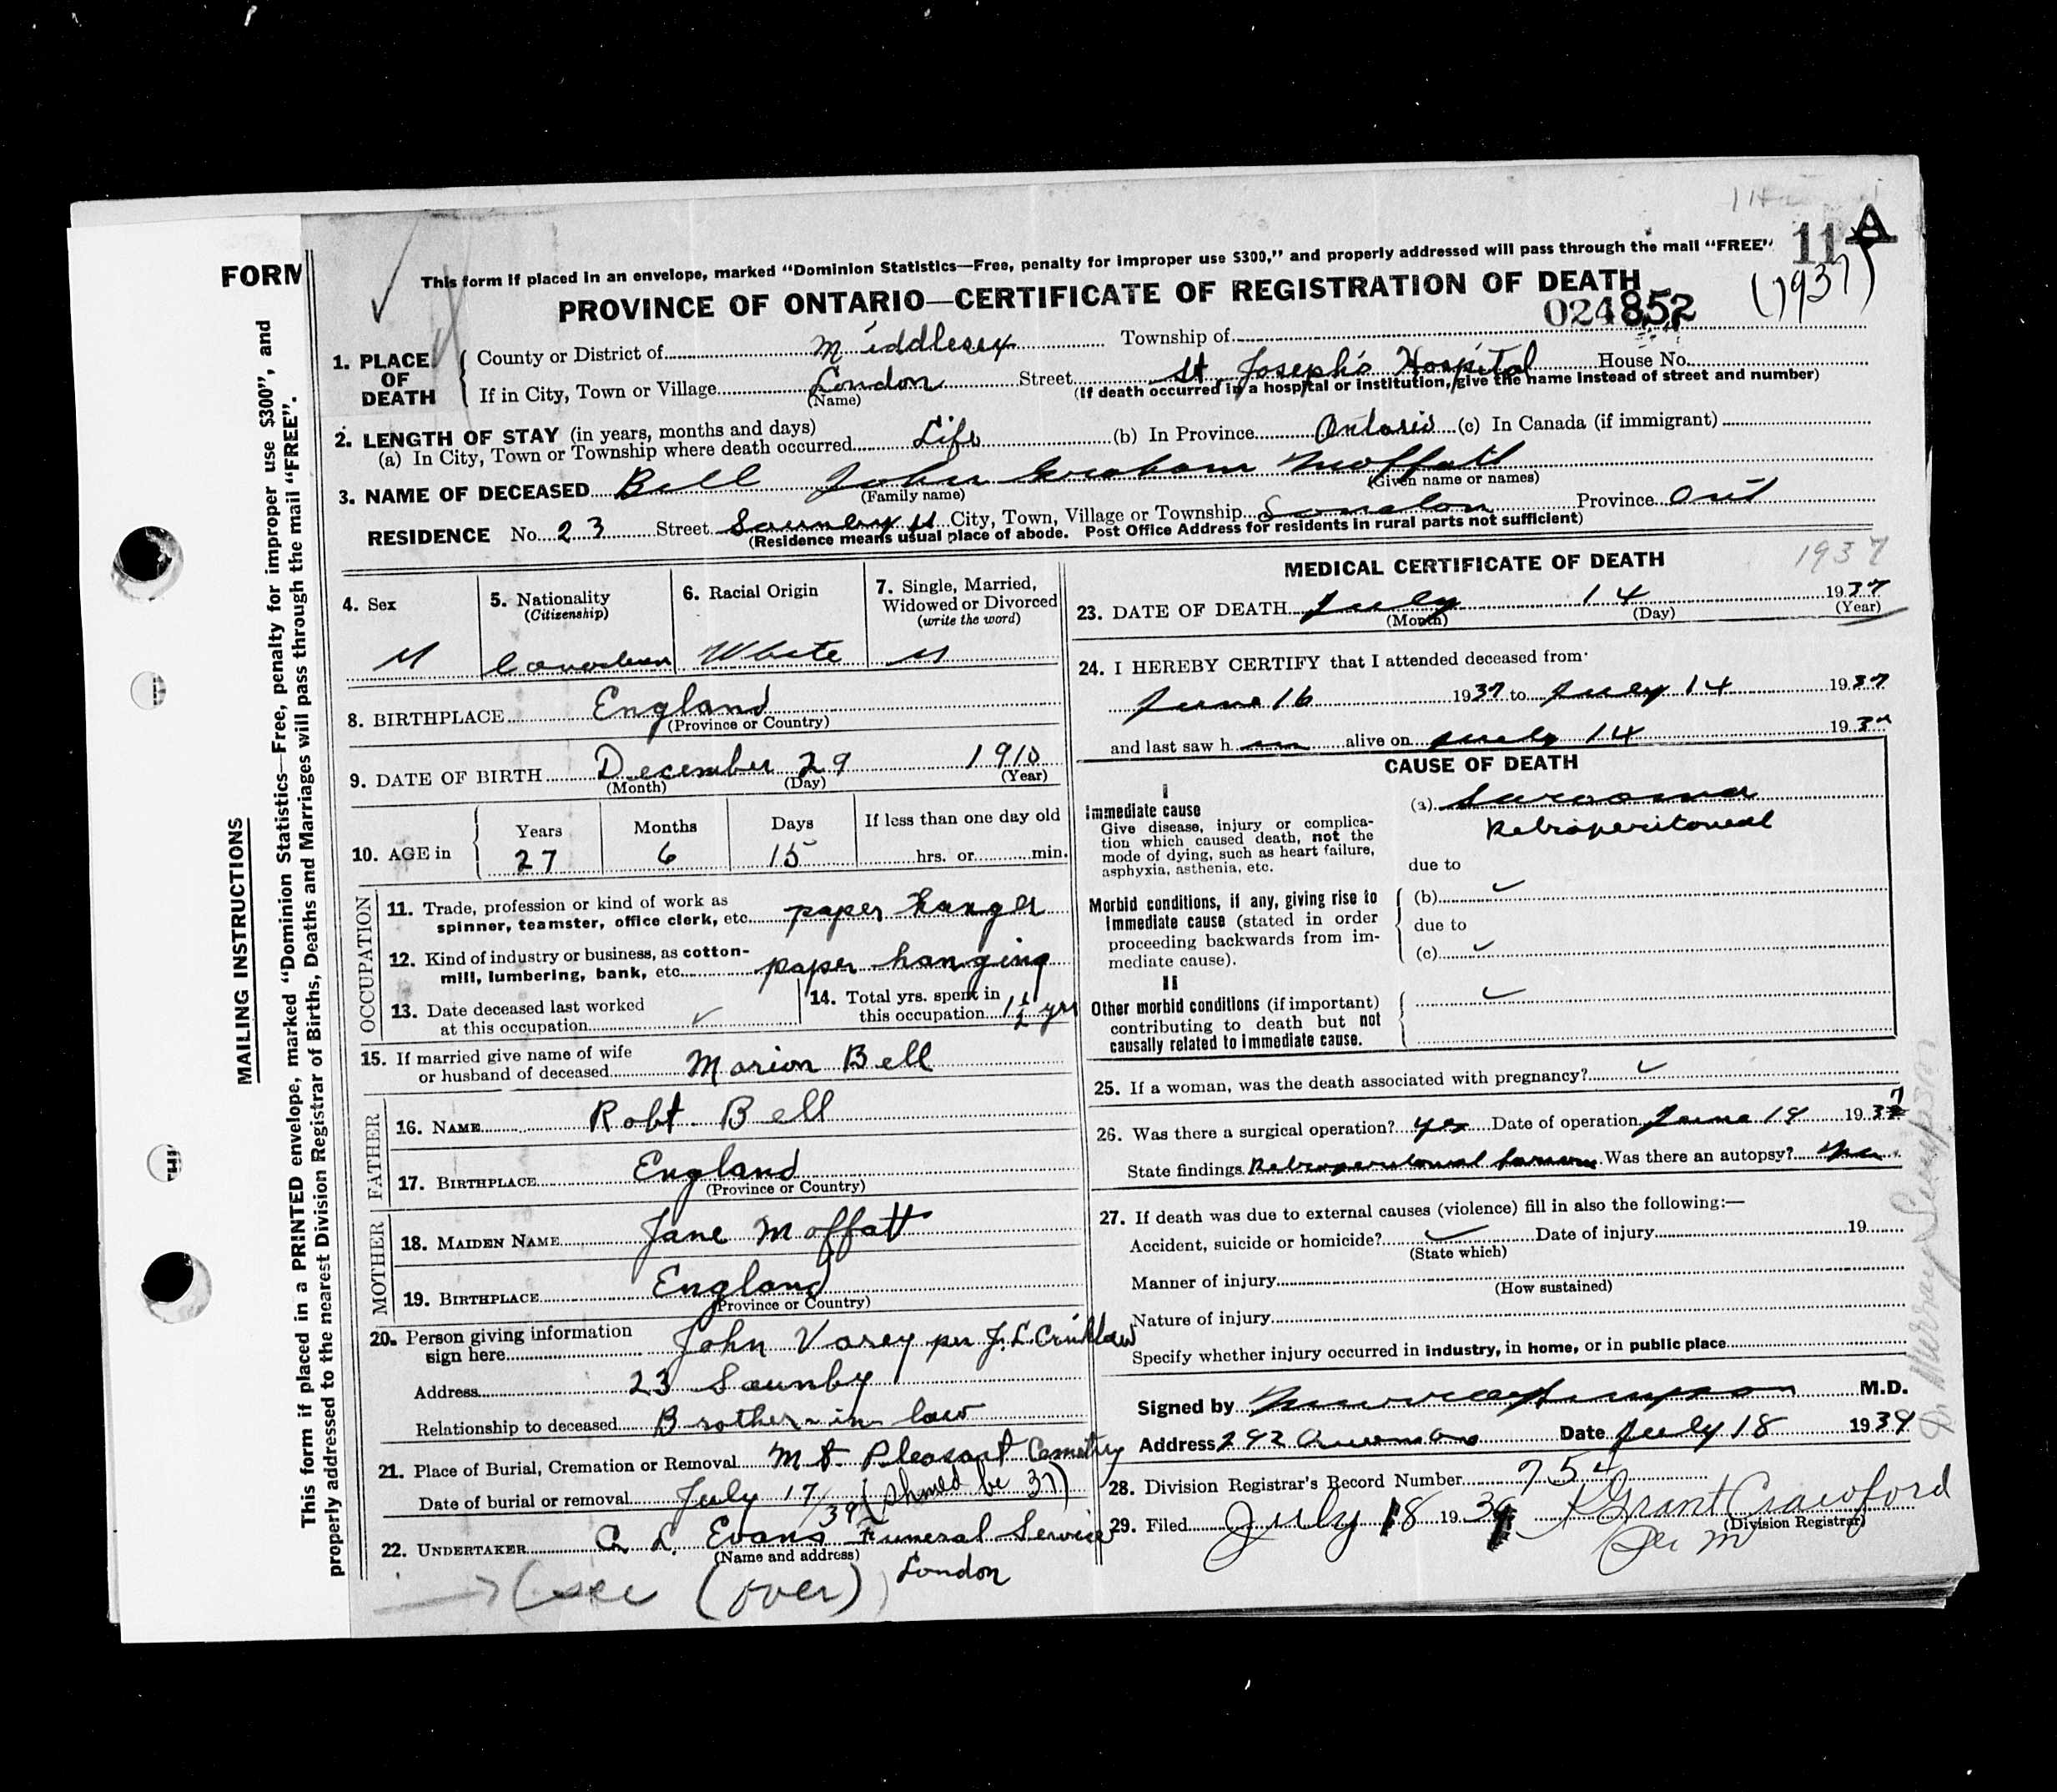 11 A
(1937)
This form if placed in an envelope, marked "Dominion Statistics—Free, penalty for improper use $300," and properly addressed will pass through the mail "FREE"
PROVINCE OF ONTARIO—CERTIFICATE OF REGISTRATION OF DEATH
024852
FORM
MAILING INSTRUCTIONS
This form if placed in a PRINTED envelope, marked "Dominion Statistics—Free, penalty for improper use $300", and
properly addressed to the nearest Division Registrar of Births, Deaths and Marriages will pass through the mail "FREE".
1. PLACE OF DEATH
County or District of Middlesex Township of
If in City, Town or Village London Street St Joseph's Hospital House No.
(Name) (If death occurred in a hospital or institution, give the name instead of street and number)
2. LENGTH OF STAY (in years, months and days)
(a) In City, Town or Township where death occurred Life (b) In Province Ontario (c) In Canada (if immigrant)
3. NAME OF DECEASED Bell John Graham Moffatt
(Family name) (Given name or names)
RESIDENCE No. 23 Street Saunby St City, Town, Village or Township London Province Ont
(Residence means usual place of abode. Post Office Address for residents in rural parts not sufficient)
4. Sex M
5. Nationality (Citizenship) Canadian
6. Racial Origin White
7. Single, Married, Widowed or Divorced (write the word) M
8. BIRTHPLACE England
(Province or Country)
9. DATE OF BIRTH December 29 1910
(Month) (Day) (Year)
10. AGE in Years 27 Months 6 Days 15 If less than one day old hrs. or min.
OCCUPATION
11. Trade, profession or kind of work as
spinner, teamster, office clerk, etc. paper hanger
12. Kind of industry or business, as cotton-
mill, lumbering, bank, etc. paper hanging
13. Date deceased last worked
at this occupation
14. Total yrs. spent in
this occupation 1½ yrs
15. If married give name of wife
or husband of deceased Marion Bell
FATHER
16. NAME Robt. Bell
17. BIRTHPLACE England
(Province or Country)
MOTHER
18. MAIDEN NAME Jane Moffatt
19. BIRTHPLACE England
(Province or Country)
20. Person giving information
sign here John Varey per J. L. Crinklaw
Address 23 Saunby
Relationship to deceased Brother-in-law
21. Place of Burial, Cremation or Removal Mt. Pleasant Cemetry
Date of burial or removal July 17/39 (should be 37)
22. UNDERTAKER Evans Funeral Service
(Name and address) London
(see (over)
1937
MEDICAL CERTIFICATE OF DEATH
23. DATE OF DEATH July 14 1937
(Month) (Day) (Year)
24. I HEREBY CERTIFY that I attended deceased from
June 16 1937 to July 14 1937
and last saw h im alive on July 14 1937
CAUSE OF DEATH
I
Immediate cause
Give disease, injury or complica-
tion which caused death, not the
mode of dying, such as heart failure,
asphyxia, asthenia, etc.
(a) Sarcoma
Retroperitoneal
due to
Morbid conditions, if any, giving rise to
immediate cause (stated in order
proceeding backwards from im-
mediate cause).
(b)
due to
(c)
II
Other morbid conditions (if important)
contributing to death but not
causally related to immediate cause.
25. If a woman, was the death associated with pregnancy?
26. Was there a surgical operation? yes Date of operation June 19 1937
State findings Retroperitoneal Sarcoma Was there an autopsy?
27. If death was due to external causes (violence) fill in also the following:—
Accident, suicide or homicide? Date of injury 19
(State which)
Manner of injury
(How sustained)
Nature of injury
Specify whether injury occurred in industry, in home, or in public place
Signed by Murray Simpson M.D.
Address 292 Date July 18 1939
28. Division Registrar's Record Number 754
29. Filed July 18 1939 Grant Crawford
(Division Registrar)
Per M
Dr Murray Simpson